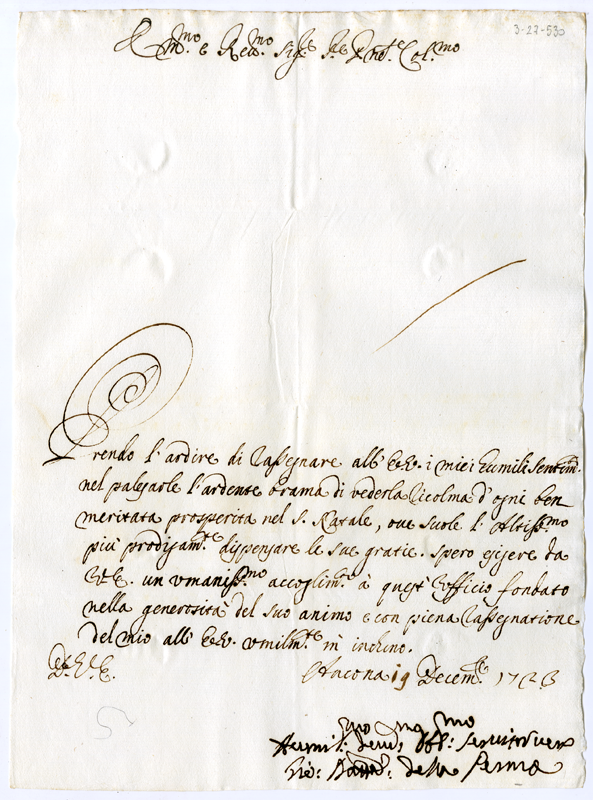 3-27-530
E.mo e Rev.mo Sig.re S.re P.ne Col.mo
Prendo l'ardire di rassegnare all' E.V. i miei humili sentim.ti
nel palesarle l'ardente brama di vederla ricolma d'ogni ben
meritata prosperità nel S. Natale, ove suole l'Altiss.mo
più prodigam.te dispensare le sue gratie. Spero esigere da
V.E. un umaniss.mo accoglim.to à quest' Ufficio fondato
nella generosità del suo animo e con piena rassegnatione
del mio all' E.V. umilm.te m' inchino.
D. V. E.
Ancona 19 Decem.re
Humil.mo Dev.mo Obl.mo Servitor vero
della Serma